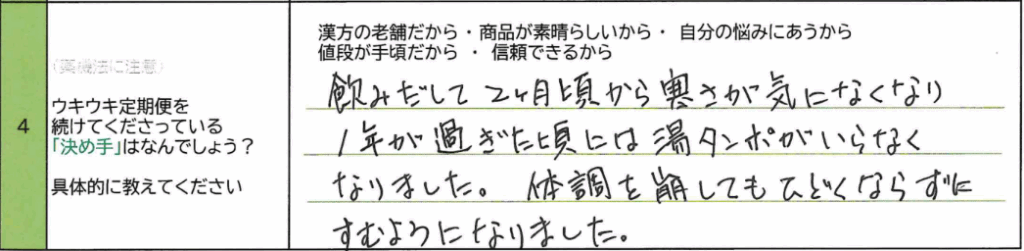 漢方の老舗だから・商品が素晴らしいから・ 自分の悩みにあうから
値段が手頃だから ・ 信頼できるから
(薬機法に注意)
4
ウキウキ定期便を
続けてくださっている
「決め手」はなんでしょう?
具体的に教えてください
飲みだして 2ヶ月頃から寒さが気になくなり
1年が過ぎた頃には湯タンポがいらなく
なりました。 体調を崩してもひどくならずに
すむようになりました。